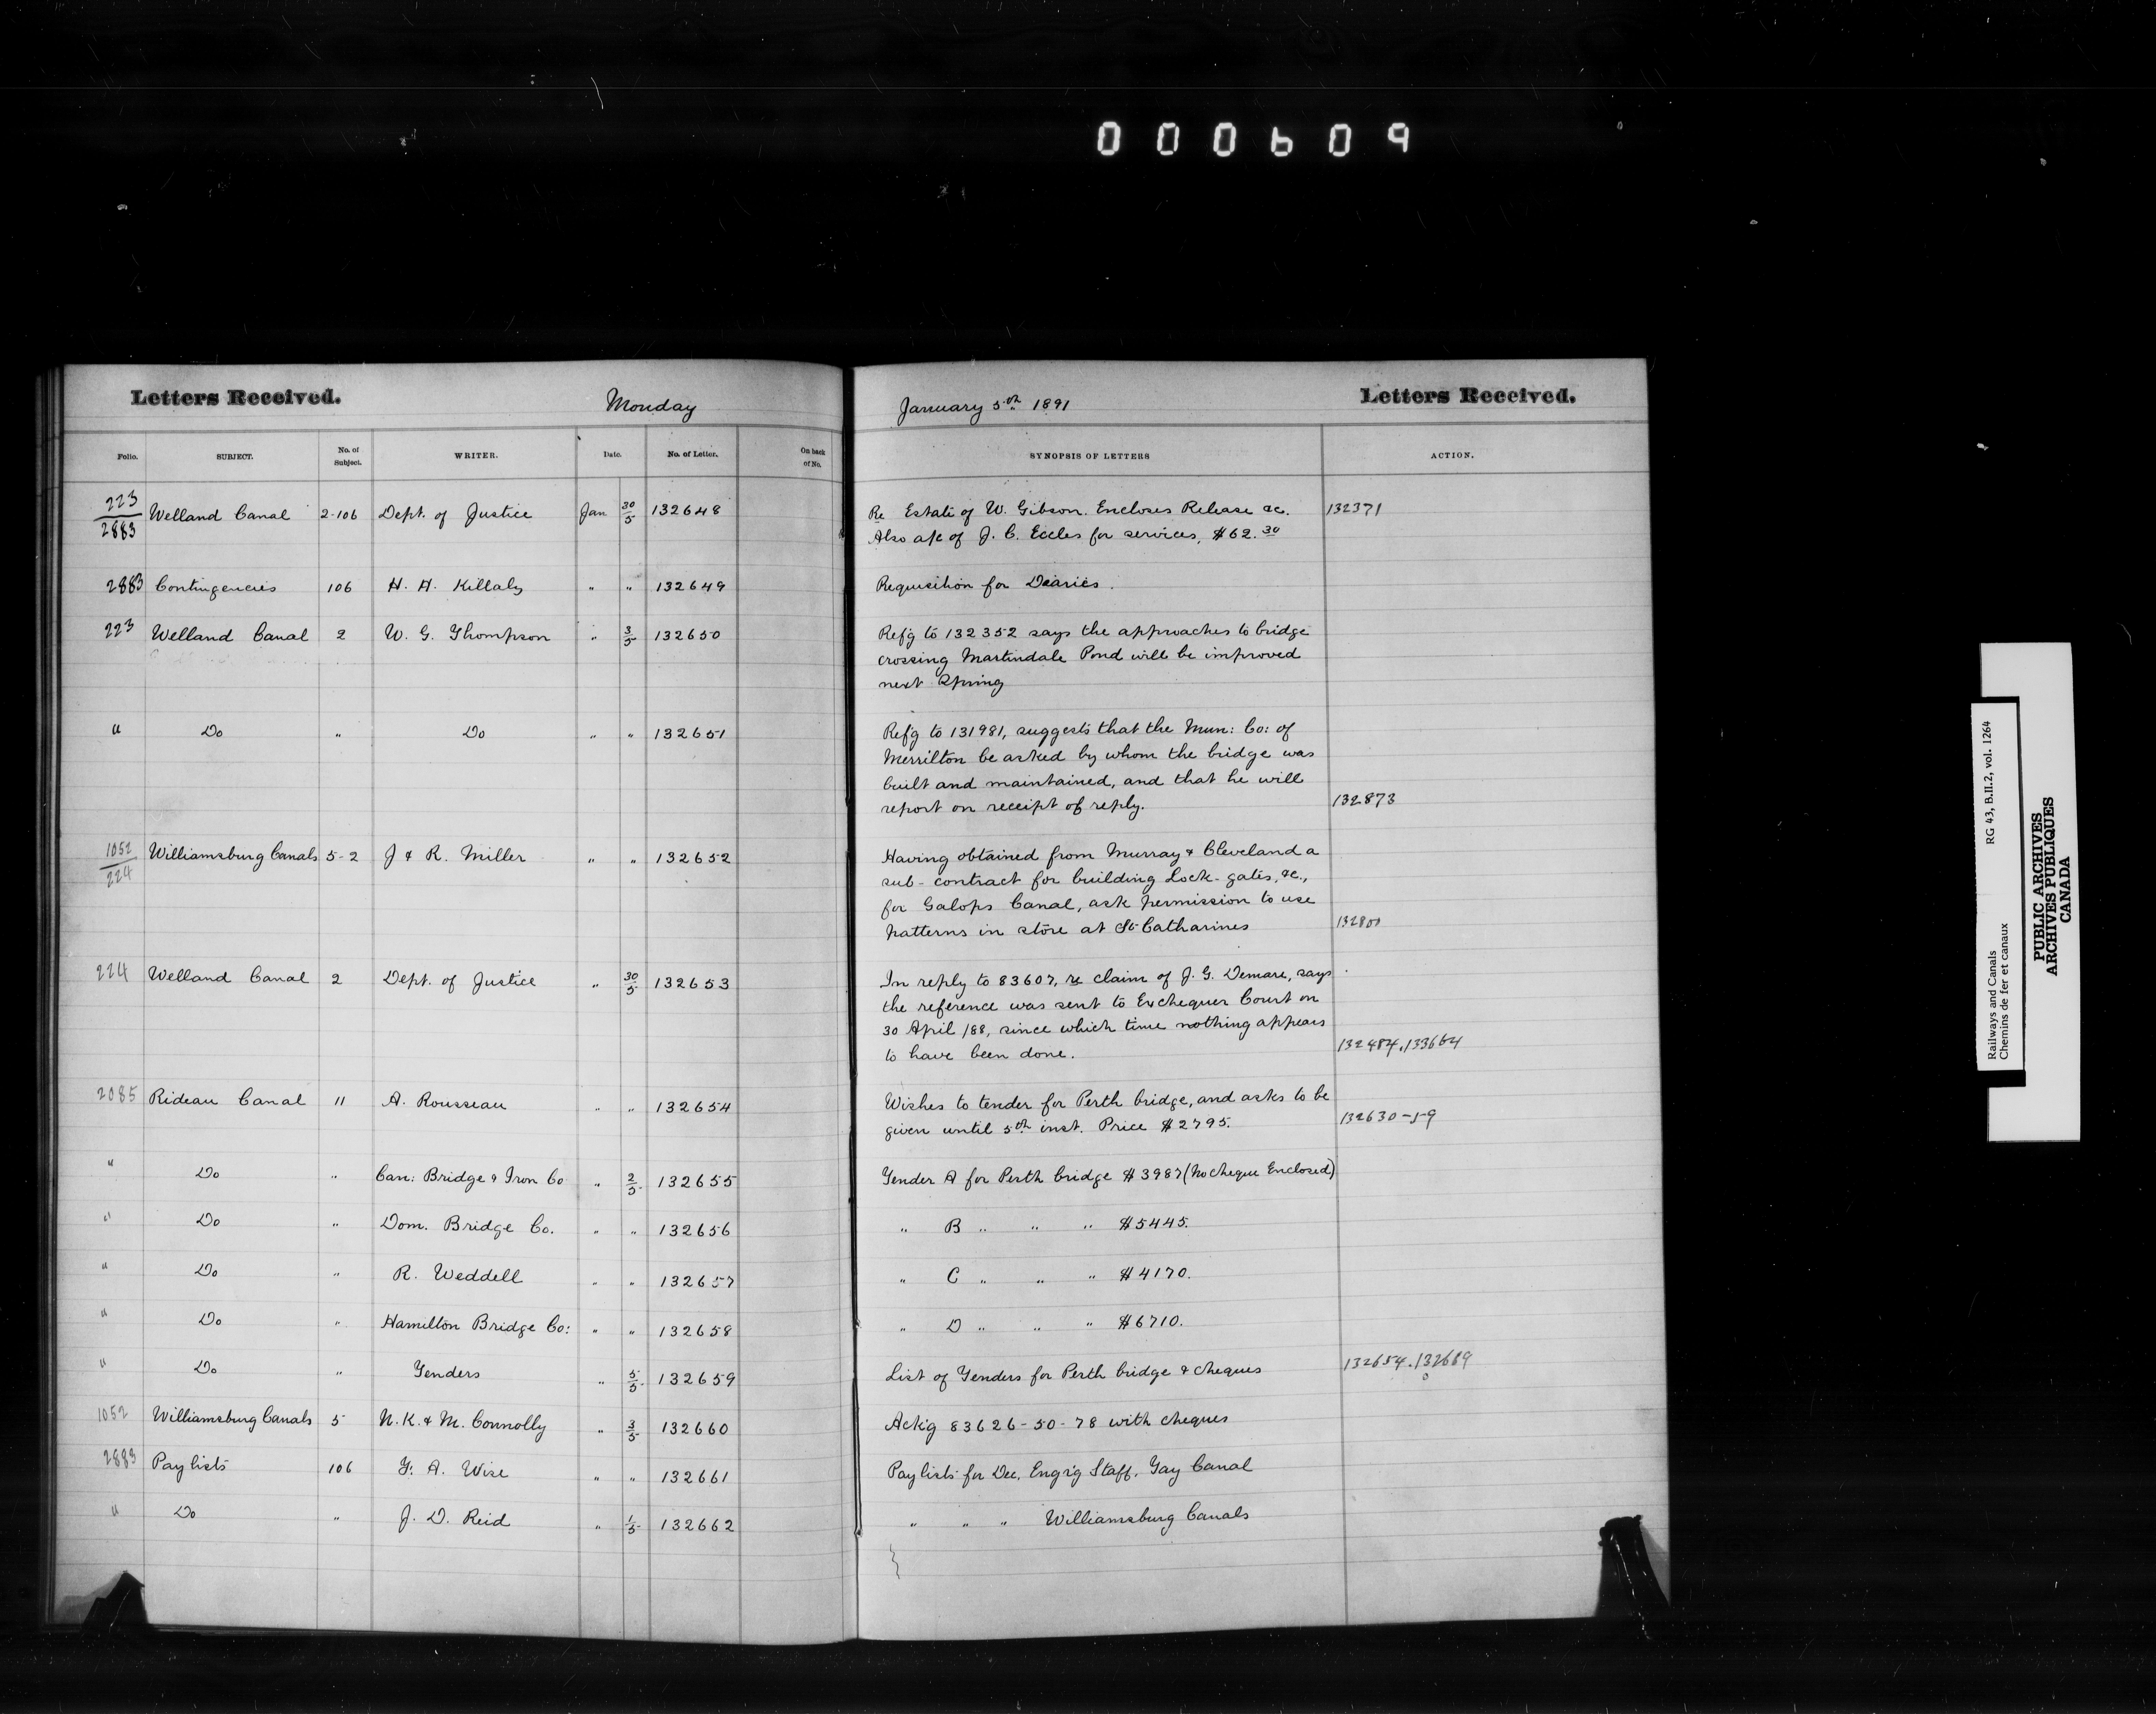 000609
Letters Received. Monday January 5th 1891 Letters Received.
Folio. SUBJECT. No. of Subject. WRITER. Date. No. of Letter. On back of No. SYNOPSIS OF LETTERS ACTION.
223/2883 Welland Canal 2-106 Dept. of Justice Jan 30/5 132648 Re Estate of W. Gibson. Encloses Release &c. 132371
Also a/c of J. C. Eccles for services, $62.30
2883 Contingencies 106 H. H. Killaly " " 132649 Requisition for Diaries.
223 Welland Canal 2 W. G. Thompson " 3/5 132650 Refg to 132352 says the approaches to bridge
crossing Martindale Pond will be improved
next Spring
" Do " Do " " 132651 Refg to 131981, suggests that the Mun: Co: of
Merrilton be asked by whom the bridge was
built and maintained, and that he will
report on receipt of reply. 132873
1052/224 Williamsburg Canals 5-2 J & R. Miller " " 132652 Having obtained from Murray & Cleveland a
sub-contract for building Lock-gates, &c.,
for Galops Canal, ask permission to use
patterns in store at St Catharines
224 Welland Canal 2 Dept. of Justice " 30/5 132653 In reply to 83607, re claim of J. G. Demare, says
the reference was sent to Exchequer Court on
30 April /88, since which time nothing appears
to have been done. 132484.133664
2085 Rideau Canal 11 A. Rousseau " " 132654 Wishes to tender for Perth bridge, and asks to be
given until 5th inst. Price $2795. 132630-59
" Do " Can: Bridge & Iron Co " 2/5 132655 Tender A for Perth bridge $3987 (No cheque Enclosed)
" Do " Dom. Bridge Co. " " 132656 " B " " " $5445.
" Do " R. Weddell " " 132657 " C " " " $4170.
" Do " Hamilton Bridge Co: " " 132658 " D " " " $6710.
" Do " Tenders " 5/5 132659 List of Tenders for Perth bridge & cheques 132654.132669
1052 Williamsburg Canals 5 N. K. & M. Connolly " 3/5 132660 Ackg 83626-50-78 with cheques
2883 Paylists 106 F. A. Wise " " 132661 Paylists for Dec. Engrg Staff, Tay Canal
" Do " J. D. Reid " 1/5 132662 " " " Williamsburg Canals
Railways and Canals RG 43, B.II.2, vol. 1264
Chemins de fer et canaux
PUBLIC ARCHIVES
ARCHIVES PUBLIQUES
CANADA